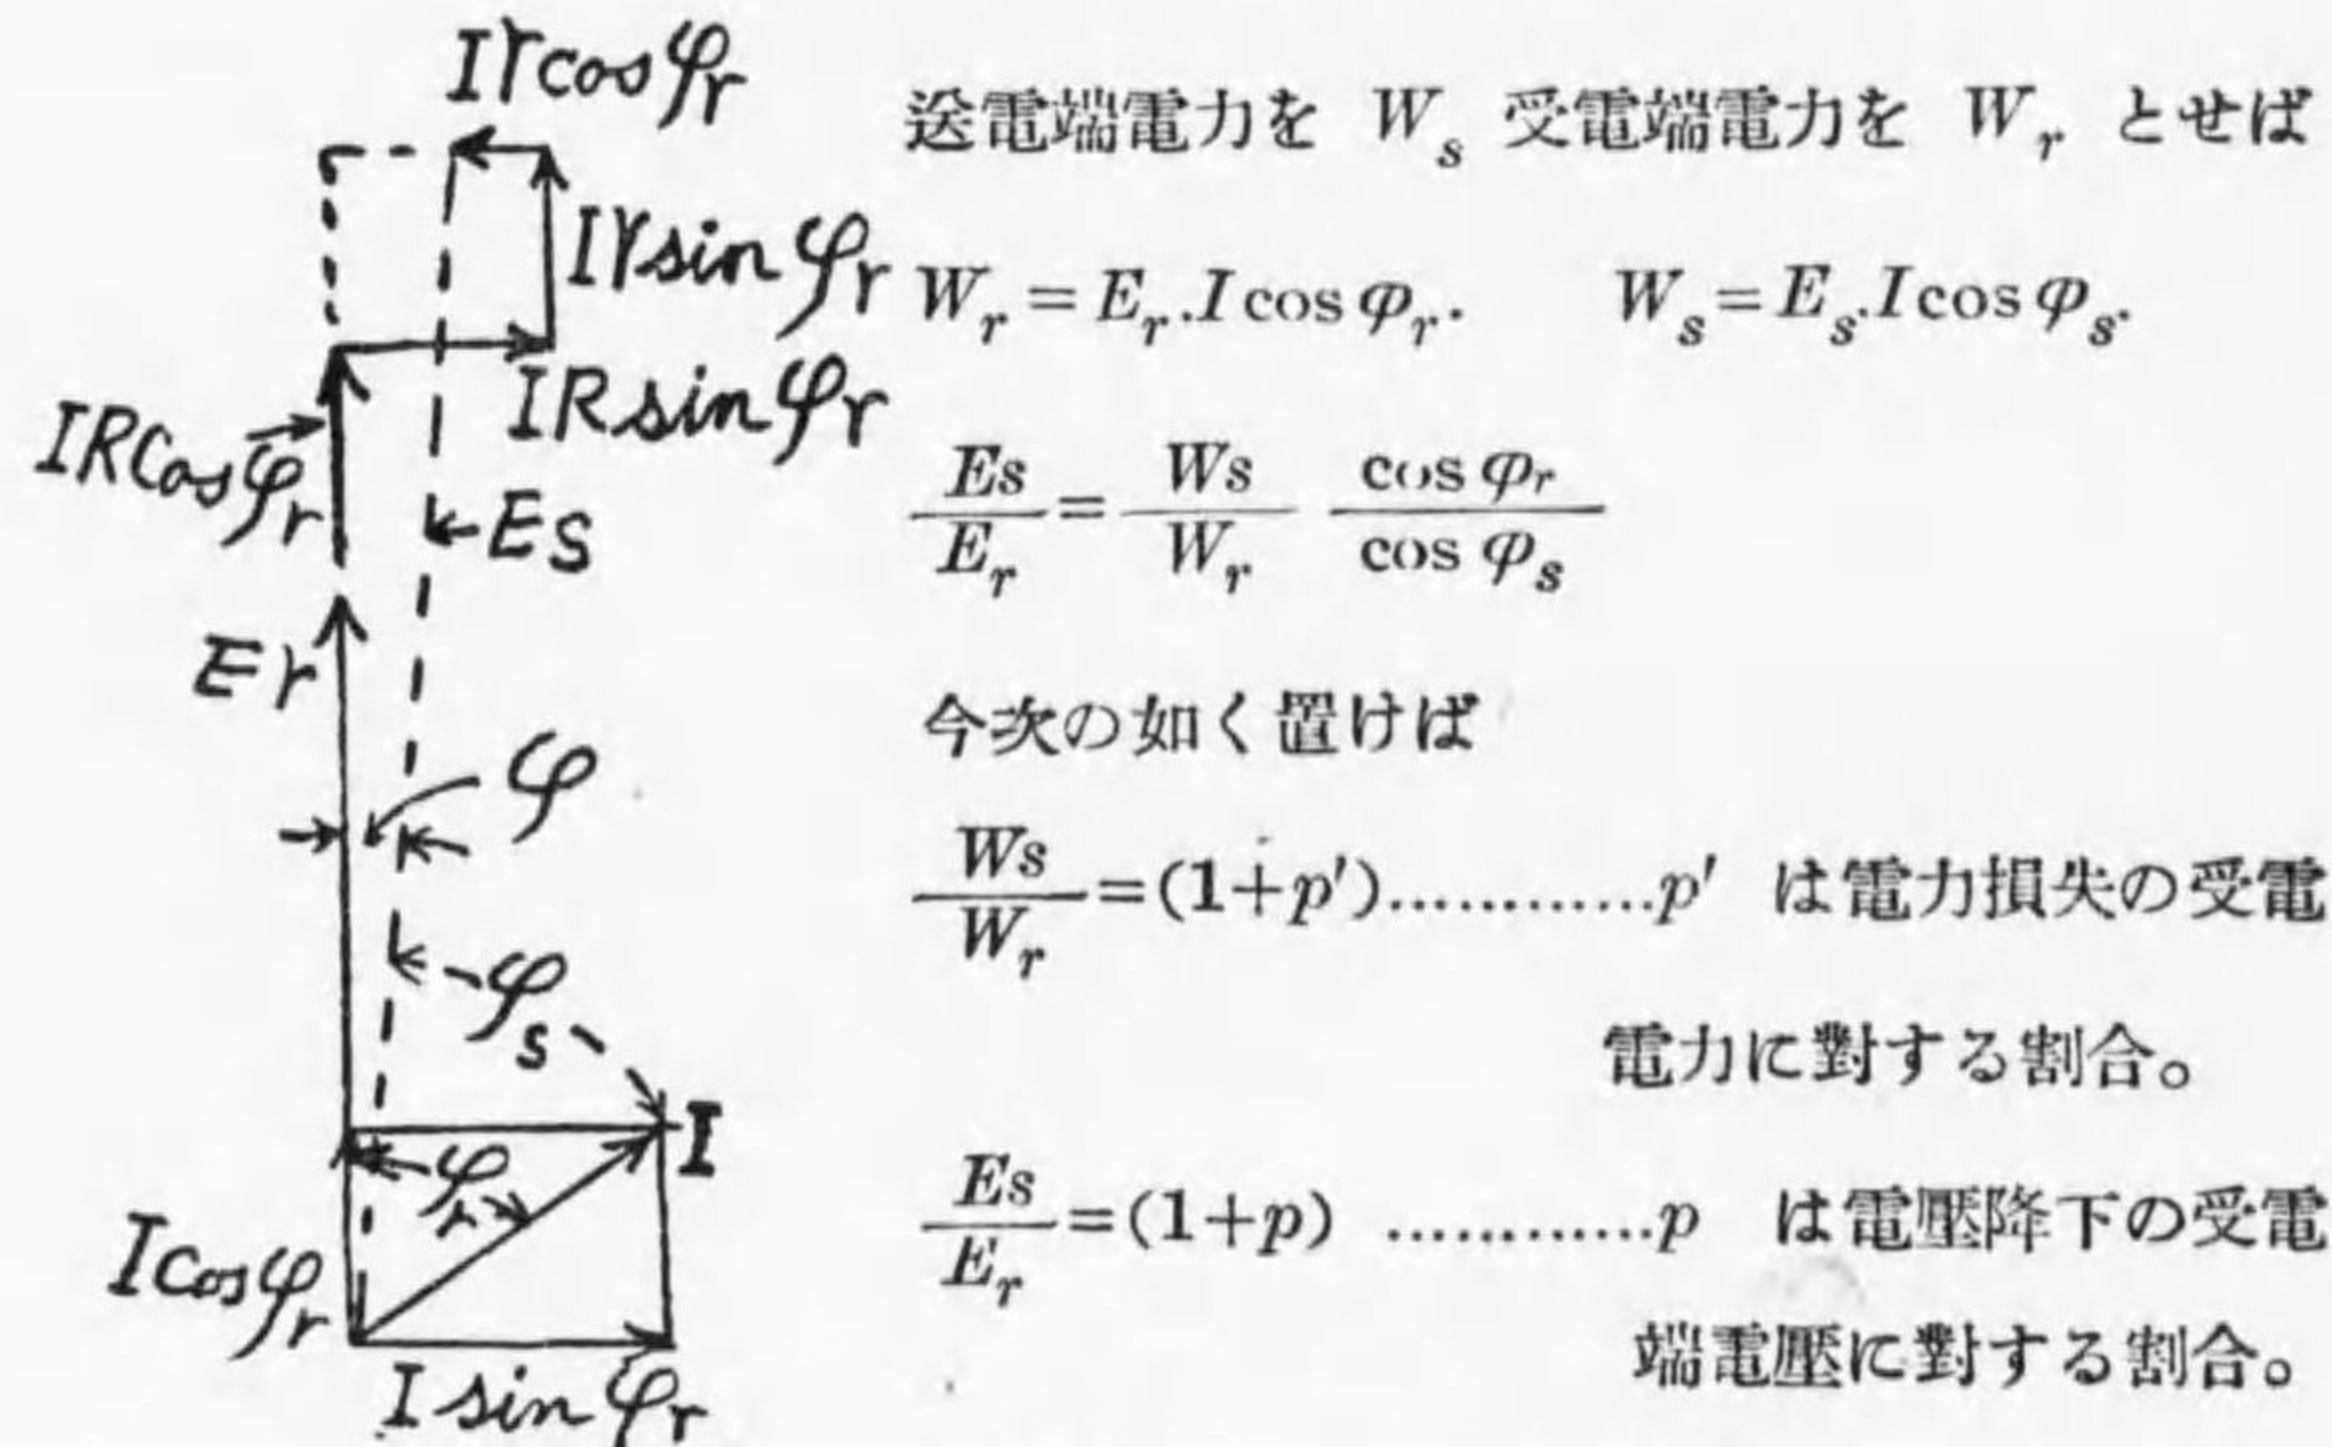 Iγcosφr
Iγsinφr
IRsinφr
IRCosφr
Es
Er
φ
φs
I
φr
Icosφr
I sinφr
送電端電力を Ws 受電端電力を Wr とせば
Wr = Er.I cos φr. Ws = Es.I cos φs.
Es/Er = Ws/Wr cos φr/cos φs
今次の如く置けば
Ws/Wr = (1+p')............p' は電力損失の受電
電力に對する割合。
Es/Er = (1+p) ............p は電壓降下の受電
端電壓に對する割合。